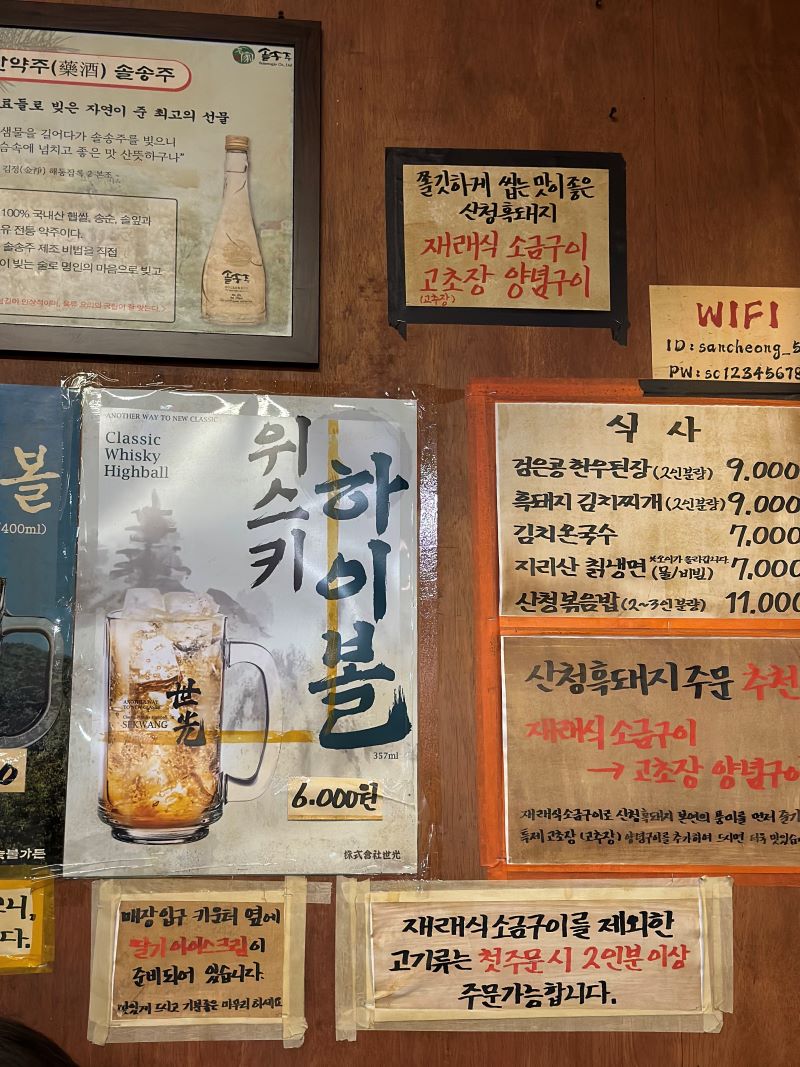 약주(藥酒) 솔송주
솔송주
료들로 빚은 자연이 준 최고의 선물
샘물을 길어다가 솔송주를 빚으니
슴속에 넘치고 좋은 맛 산뜻하구나"
김정(金淨) 해동잡록 2 본조
100% 국내산 햅쌀, 송순, 솔잎과
유 전통 약주이다.
솔송주 제조 비법을 직접
이 빚는 술로 명인의 마음으로 빚고
솔송주
쫄깃하게 씹는 맛이 좋은
산청흑돼지
재래식 소금구이
고초장 양념구이
(고추장)
WIFI
ID: sancheong_5
PW: sc12345678
볼
(400ml)
0
늘봄가든
ANOTHER WAY TO NEW CLASSIC
Classic
Whisky
Highball
위스키
하이볼
世光
ANOTHER WAY
TO NEW CLASSIC
SEKWANG
357ml
6.000원
株式會社世光
식 사
검은콩 한우된장 (2인분량) 9.000
흑돼지 김치찌개 (2인분량) 9.000
김치온국수 7,000
지리산 칡냉면 (물/비빔) 7,000
산청볶음밥 (2~3인분량) 11.000
산청흑돼지 주문 추천
재래식 소금구이
→ 고초장 양념구이
재래식소금구이로 산청흑돼지 본연의 풍미를 먼저 즐기
특제 고초장 (고추장) 양념구이를 추가하여 드시면 더욱 맛있습
니,
다.
매장입구 카운터 옆에
딸기 아이스크림이
준비되어 있습니다.
맛있게 드시고 기분좋은 마무리 하세요
재래식 소금구이를 제외한
고기류는 첫주문 시 2인분 이상
주문가능합니다.